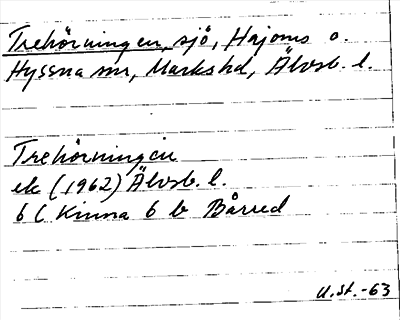 Trehörningen, sjö, Hajoms o.
Hyssna snr, Markshd, Älvsb. l.
Trehörningen
ek (1962) Älvsb. l.
6 C Kinna 6 b Bårred
U.St.-63